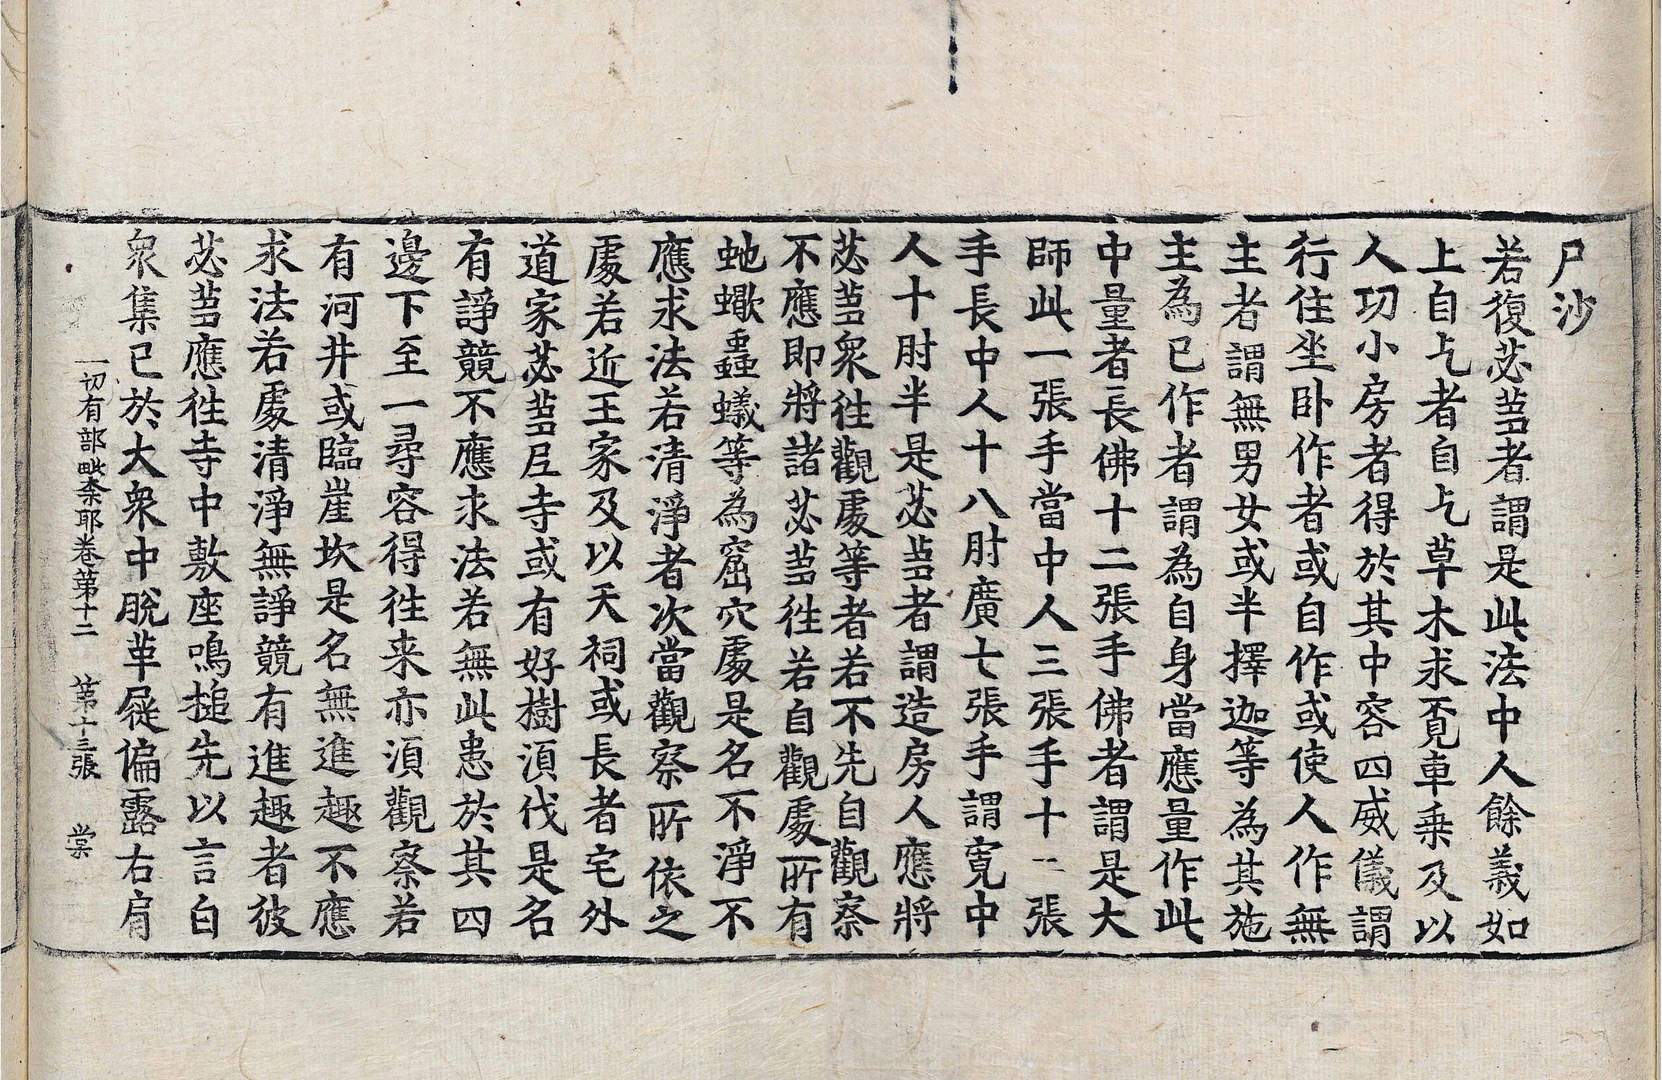 尸沙
若復苾芻者謂是此法中人餘義如
上自乞者自乞草木求覓車乘及以
人功小房者得於其中容四威儀謂
行住坐卧作者或自作或使人作無
主者謂無男女或半擇迦等為其施
主為已作者謂為自身當應量作此
中量者長佛十二張手佛者謂是大
師此一張手當中人三張手十二張
手長中人十八肘廣七張手謂寬中
人十肘半是苾芻者謂造房人應將
苾芻衆往觀處等者若不先自觀察
不應即將諸苾芻往若自觀處所有
虵蠍蟲蟻等為窟穴處是名不淨不
應求法若清淨者次當觀察所依之
處若近王家及以天祠或長者宅外
道家苾芻尼寺或有好樹湏伐是名
有諍競不應求法若無此患於其四
邊下至一尋容得往来亦湏觀察若
有河井或臨崖坎是名無進趣不應
求法若處清淨無諍競有進趣者彼
苾芻應往寺中敷座鳴搥先以言白
衆集已於大衆中脫革屣偏露右肩
一切有部毗柰耶卷第十二 第十三張 棠